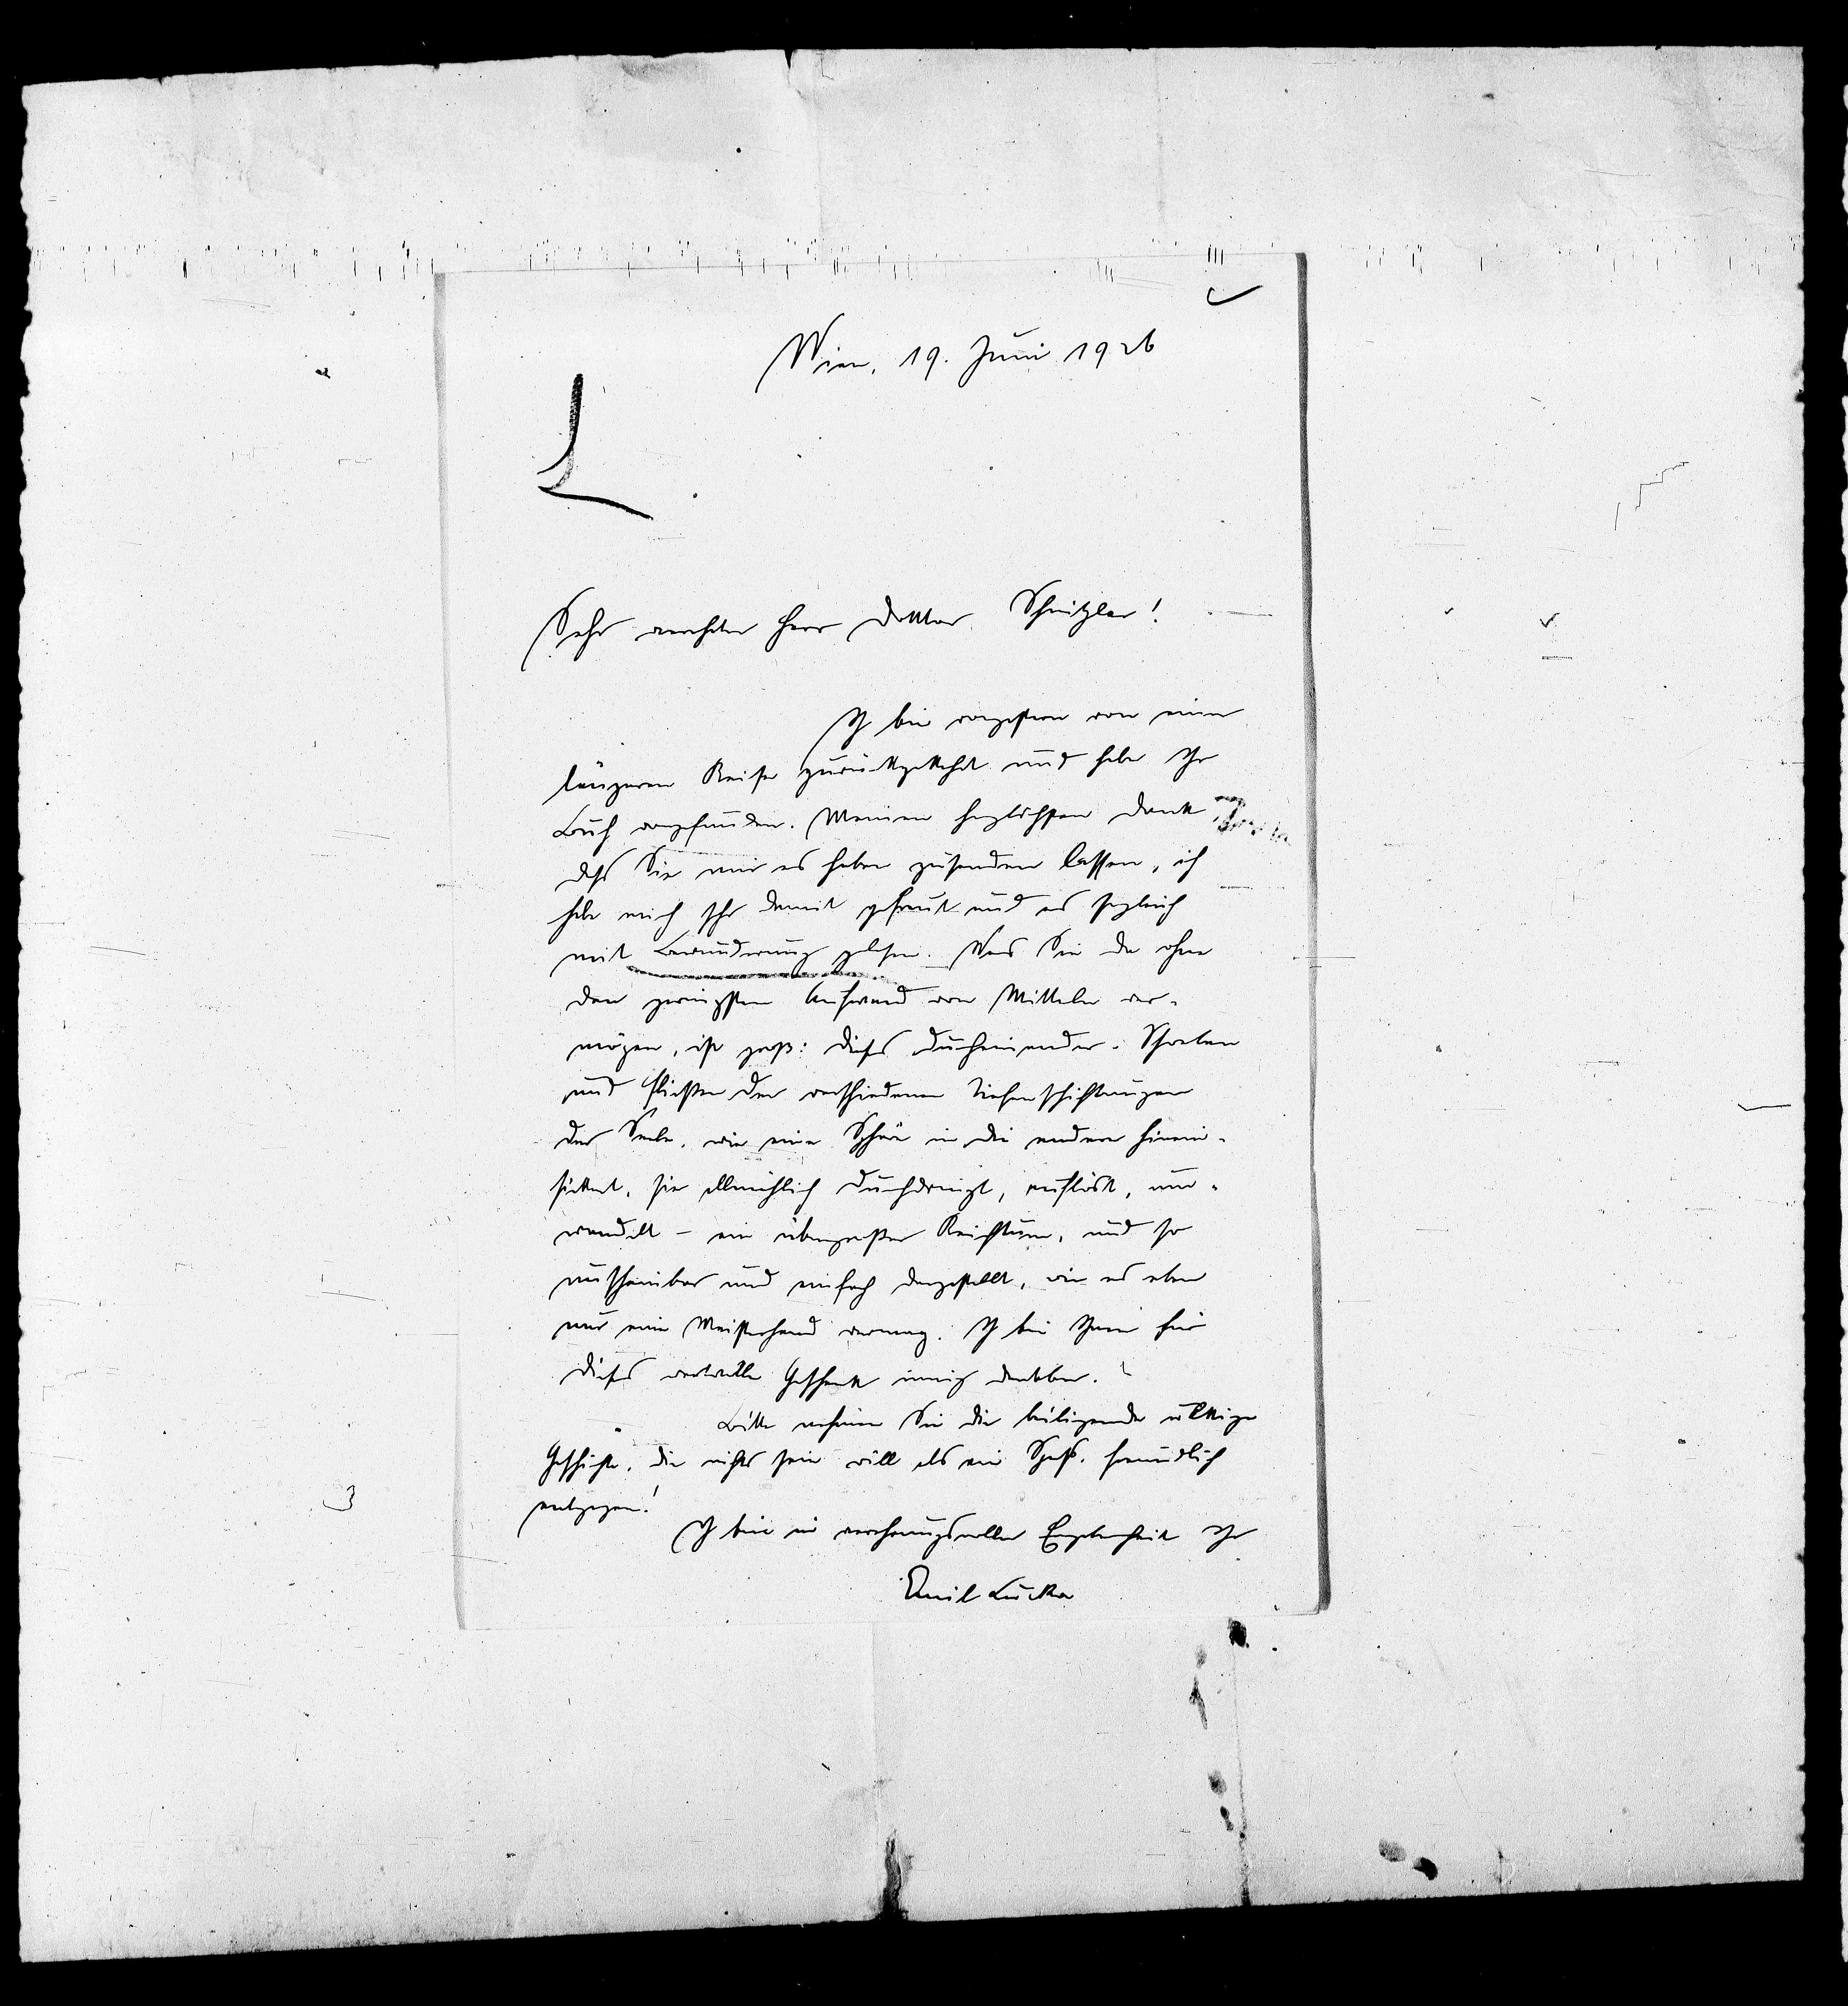 Wien, 19. Juni 1926
L
Sehr verehrter Herr Doktor Schnitzler!
Ich bin vorgestern von einer
längeren Reise zurückgekehrt und habe Ihr
Buch vorgefunden. Meinen herzlichsten Dank
dass Sie mir es haben zusenden lassen, ich
habe mich sehr damit gefreut und es sogleich
mit Bewunderung gelesen. Was Sie da ohne
den geringsten Aufwand von Mitteln ver-
mögen, ist groß: dieses Durcheinander-Schweben
und Fließen der verschiedenen Tiefenschichtungen
der Seele, wie eine Sphäre in die andere hinein-
sickert, sie allmählich durchdringt, auflöst, um-
wandelt – ein übergroßer Reichtum, und so
unscheinbar und einfach dargestellt, wie es eben
nur eine Meisterhand vermag. Ich bin Ihnen für
dieses wertvolle Geschenk innig dankbar.
Bitte nehmen Sie die beiliegende ulkige
Geschichte, die nichts sein will als ein Spaß, freundlich
entgegen!
Ich bin in verehrungsvoller Ergebenheit Ihr
Emil Lucka